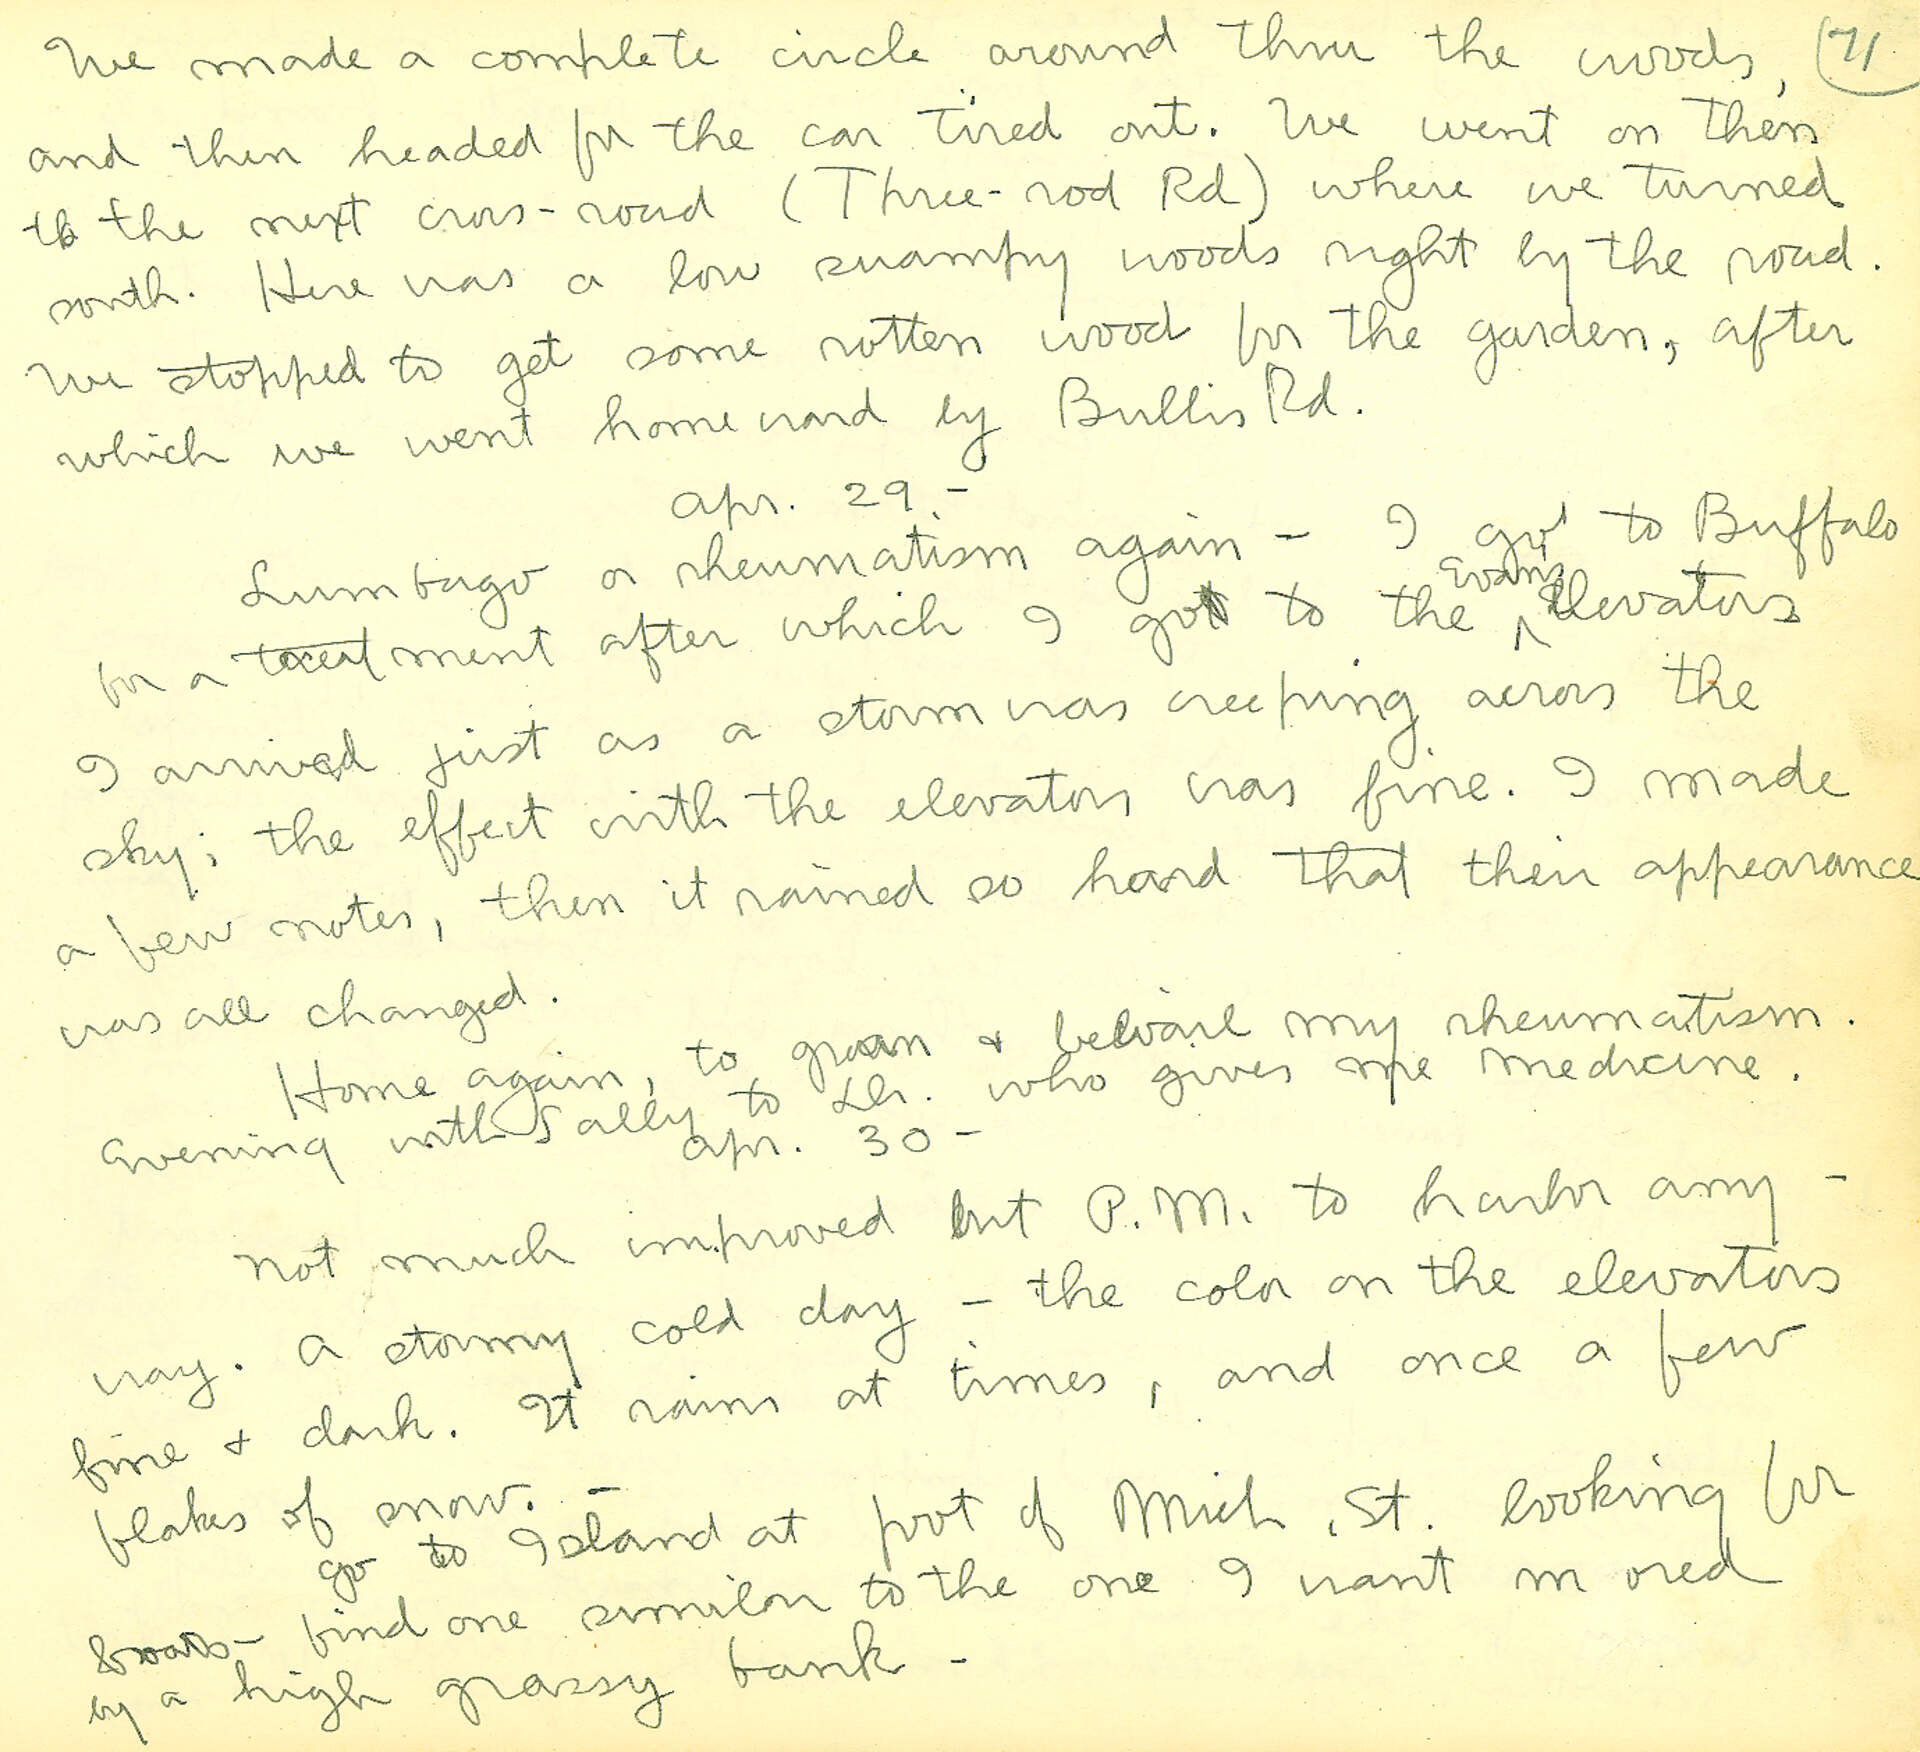 We made a complete circle around thru the woods, 71
and then headed for the car tired out. We went on then
to the next cross-road (Three-rod Rd) where we turned
south. Here was a low swampy woods right by the road.
We stopped to get some rotten wood for the garden, after
which we went homeward by Bullis Rd.
Apr. 29.-
Lumbago or rheumatism again - I go to Buffalo
for a treatment after which I go to the Evans Elevators
I arrived just as a storm was creeping across the
sky; the effect with the elevators was fine. I made
a few notes, then it rained so hard that their appearance
was all changed.
Home again, to groan & bewail my rheumatism.
Evening with Sally to Dr. who gives me medicine.
Apr. 30 -
Not much improved but P.M. to harbor any -
way. A stormy cold day - the color on the elevators
fine & dark. It rains at times, and once a few
flakes of snow. -
go to Island at foot of Mich. St. looking for
boats - find one similar to the one I want moored
by a high grassy bank -